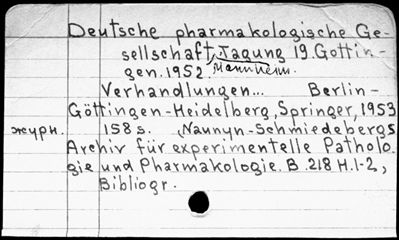 Deutsche pharmakologische Ge-
sellschaft, Tagung 19. Göttin-
gen. 1952. Mannheim.
Verhandlungen... Berlin-
Göttingen-Heidelberg, Springer, 1953
журн. 158 s. (Naunyn-Schmiedebergs
Archiv für experimentelle Patholo-
gie und Pharmakologie. B. 218 H.1-2,
Bibliogr.